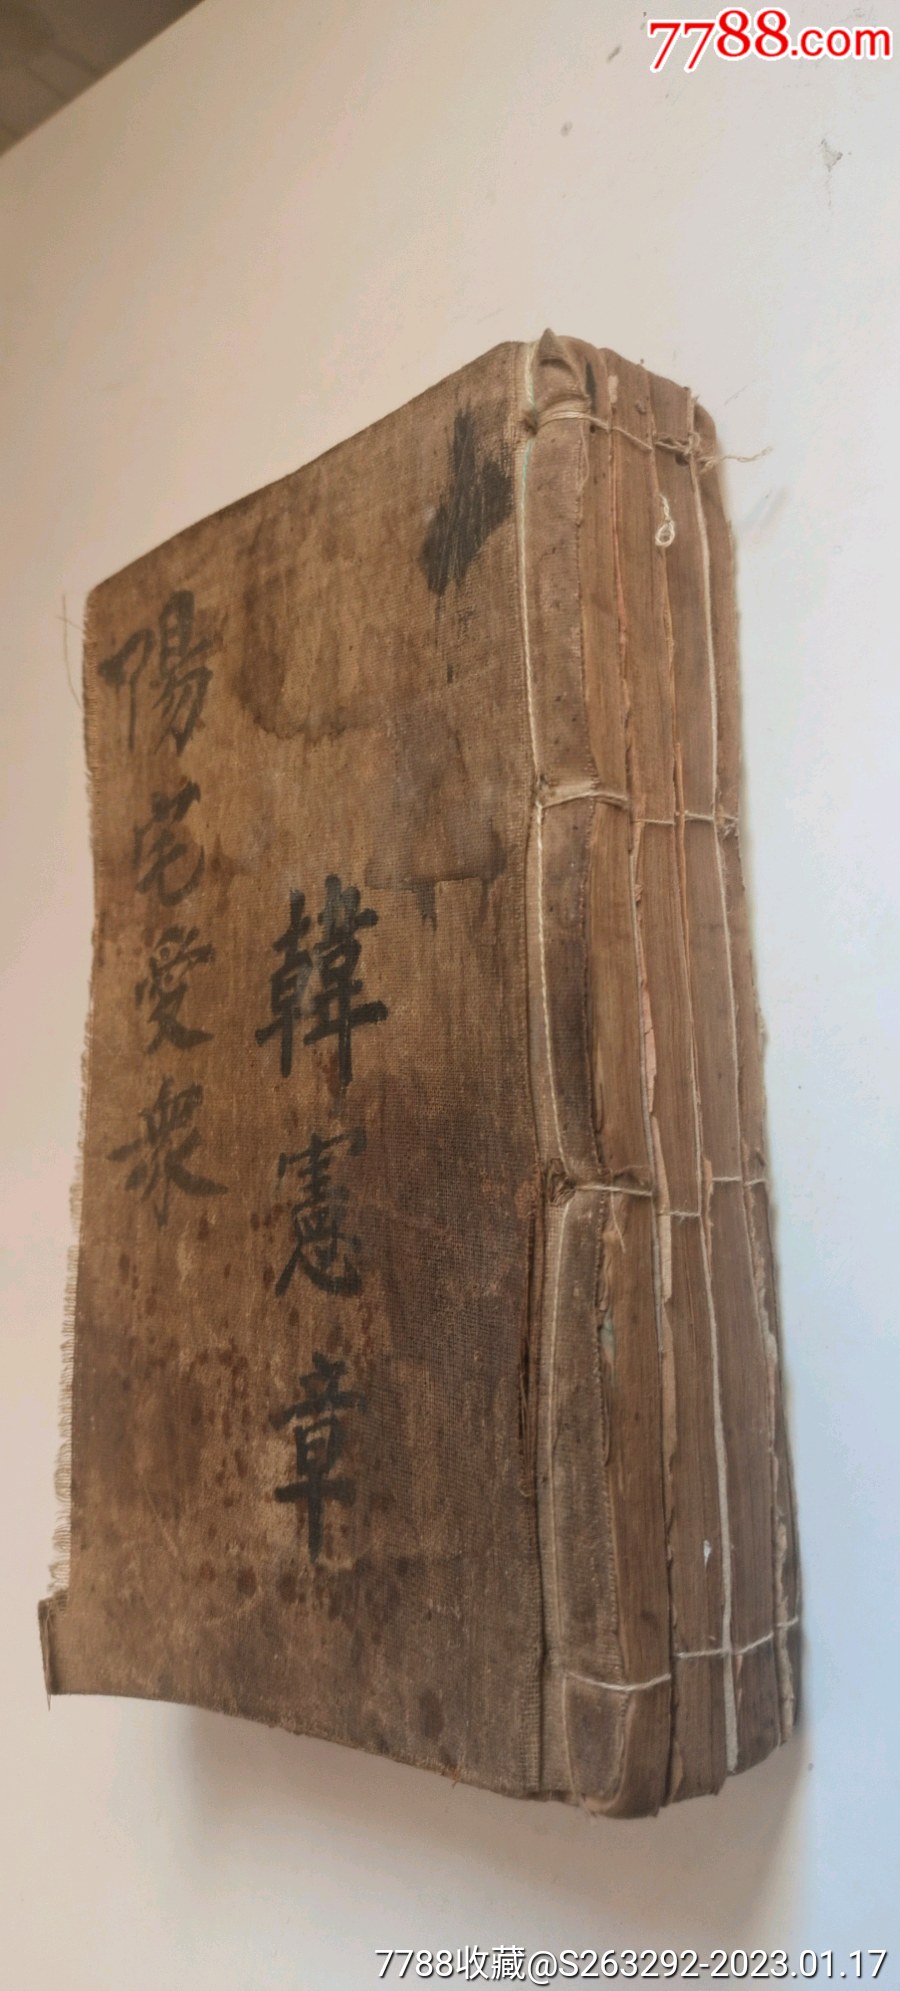 7788.com
陽宅愛衆
韓憲章
7788收藏@S263292-2023.01.17